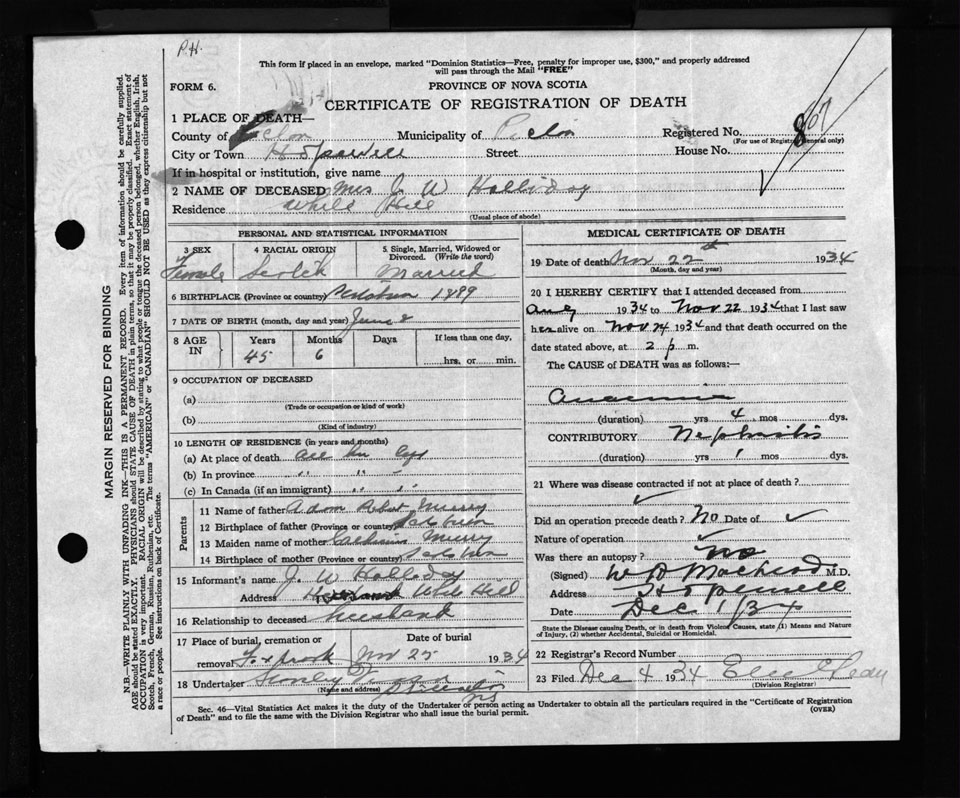 P.H.
This form if placed in an envelope, marked "Dominion Statistics—Free, penalty for improper use, $300," and properly addressed
will pass through the Mail "FREE"
FORM 6.
PROVINCE OF NOVA SCOTIA
CERTIFICATE OF REGISTRATION OF DEATH
1 PLACE OF DEATH—
County of Pictou Municipality of Pictou Registered No.
(For use of Registrar General only)
City or Town Hopewell Street House No.
If in hospital or institution, give name
2 NAME OF DECEASED Mrs J. W Holliday
Residence White Hill
(Usual place of abode)
PERSONAL AND STATISTICAL INFORMATION
3 SEX 4 RACIAL ORIGIN 5 Single, Married, Widowed or Divorced. (Write the word)
Female Scotch Married
6 BIRTHPLACE (Province or country) 1889
7 DATE OF BIRTH (month, day and year) June 2
8 AGE IN Years Months Days If less than one day,
45 6 hrs. or min.
9 OCCUPATION OF DECEASED
(a)
(Trade or occupation or kind of work)
(b)
(Kind of industry)
10 LENGTH OF RESIDENCE (in years and months)
(a) At place of death all her life
(b) In province " " "
(c) In Canada (if an immigrant) " "
Parents
11 Name of father Adam Robert Murry
12 Birthplace of father (Province or country)
13 Maiden name of mother Murry
14 Birthplace of mother (Province or country)
15 Informant's name J. W Holliday
Address White Hill
16 Relationship to deceased husband
17 Place of burial, cremation or removal Date of burial
Foxbrook Nov 25 1934
18 Undertaker
(Name and address)
MEDICAL CERTIFICATE OF DEATH
19 Date of death Nov 22th 1934
(Month, day and year)
20 I HEREBY CERTIFY that I attended deceased from
Aug 1934 to Nov 22 1934 that I last saw
her alive on Nov 24 1934 and that death occurred on
date stated above, at 2 p. m.
The CAUSE of DEATH was as follows:—
Anaemia
(duration) yrs 4 mos dys.
CONTRIBUTORY Nephritis
(duration) yrs 1 mos. dys.
21 Where was disease contracted if not at place of death?
✓
Did an operation precede death? No Date of ✓
Nature of operation ✓
Was there an autopsy? No
(Signed) M.D.
Address Hopewell
Date Dec 1/34
State the Disease causing Death, or in death from Violent Causes, state (1) Means and Nature
of Injury, (2) whether Accidental, Suicidal or Homicidal.
22 Registrar's Record Number
23 Filed Dec 4 1934
(Division Registrar)
Sec. 46—Vital Statistics Act makes it the duty of the Undertaker or person acting as Undertaker to obtain all the particulars required in the "Certificate of Registration
of Death" and to file the same with the Division Registrar who shall issue the burial permit.
(OVER)
MARGIN RESERVED FOR BINDING
N.B.—WRITE PLAINLY WITH UNFADING INK—THIS IS A PERMANENT RECORD. Every item of information should be carefully supplied.
AGE should be stated EXACTLY. PHYSICIANS should STATE CAUSE OF DEATH in plain terms, so that it may be properly classified. Exact statement of
OCCUPATION is very important. RACIAL ORIGIN will be described by stating to what people or tongue the deceased person belonged, whether English, Irish,
Scotch, French, German, Russian, Ruthenian, etc. The terms "AMERICAN" or "CANADIAN" SHOULD NOT BE USED as they express citizenship but not
a race or people. See instructions on back of Certificate.